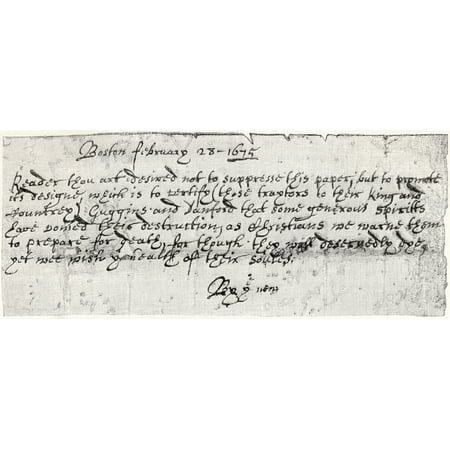 Boston february 28 - 1675
Reader thou art desired not to suppresse this paper, but to promote
its designe, which is to certify (those traytors to their king and
countrey) Guggins and Danford, that some generous spiritts
have vowed their destruction, as Christians we warne them
to prepare for death, for though they will deservedly dye,
yet wee wish ye health of their soules.
By ye new